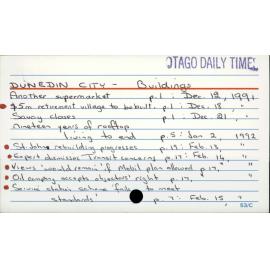 OTAGO DAILY TIMES
DUNEDIN CITY - Buildings
Another supermarket p.1 : Dec. 12, 1991
$5m retirement village to be built. p.1 : Dec. 18, "
Savoy closes p.1 : Dec. 21, "
Nineteen years of rooftop
living to end p.5 : Jan 2, 1992
St. John rebuilding progresses p.19 : Feb. 13, "
Expert dismisses Transit concerns p.17 : Feb. 14, "
Views 'would remain' if Mobil plan allowed p.17, "
Oil company accepts objectors' right p.17, "
Seismic status scheme 'fails to meet
standards' p.7 : Feb. 15 "
S3/C